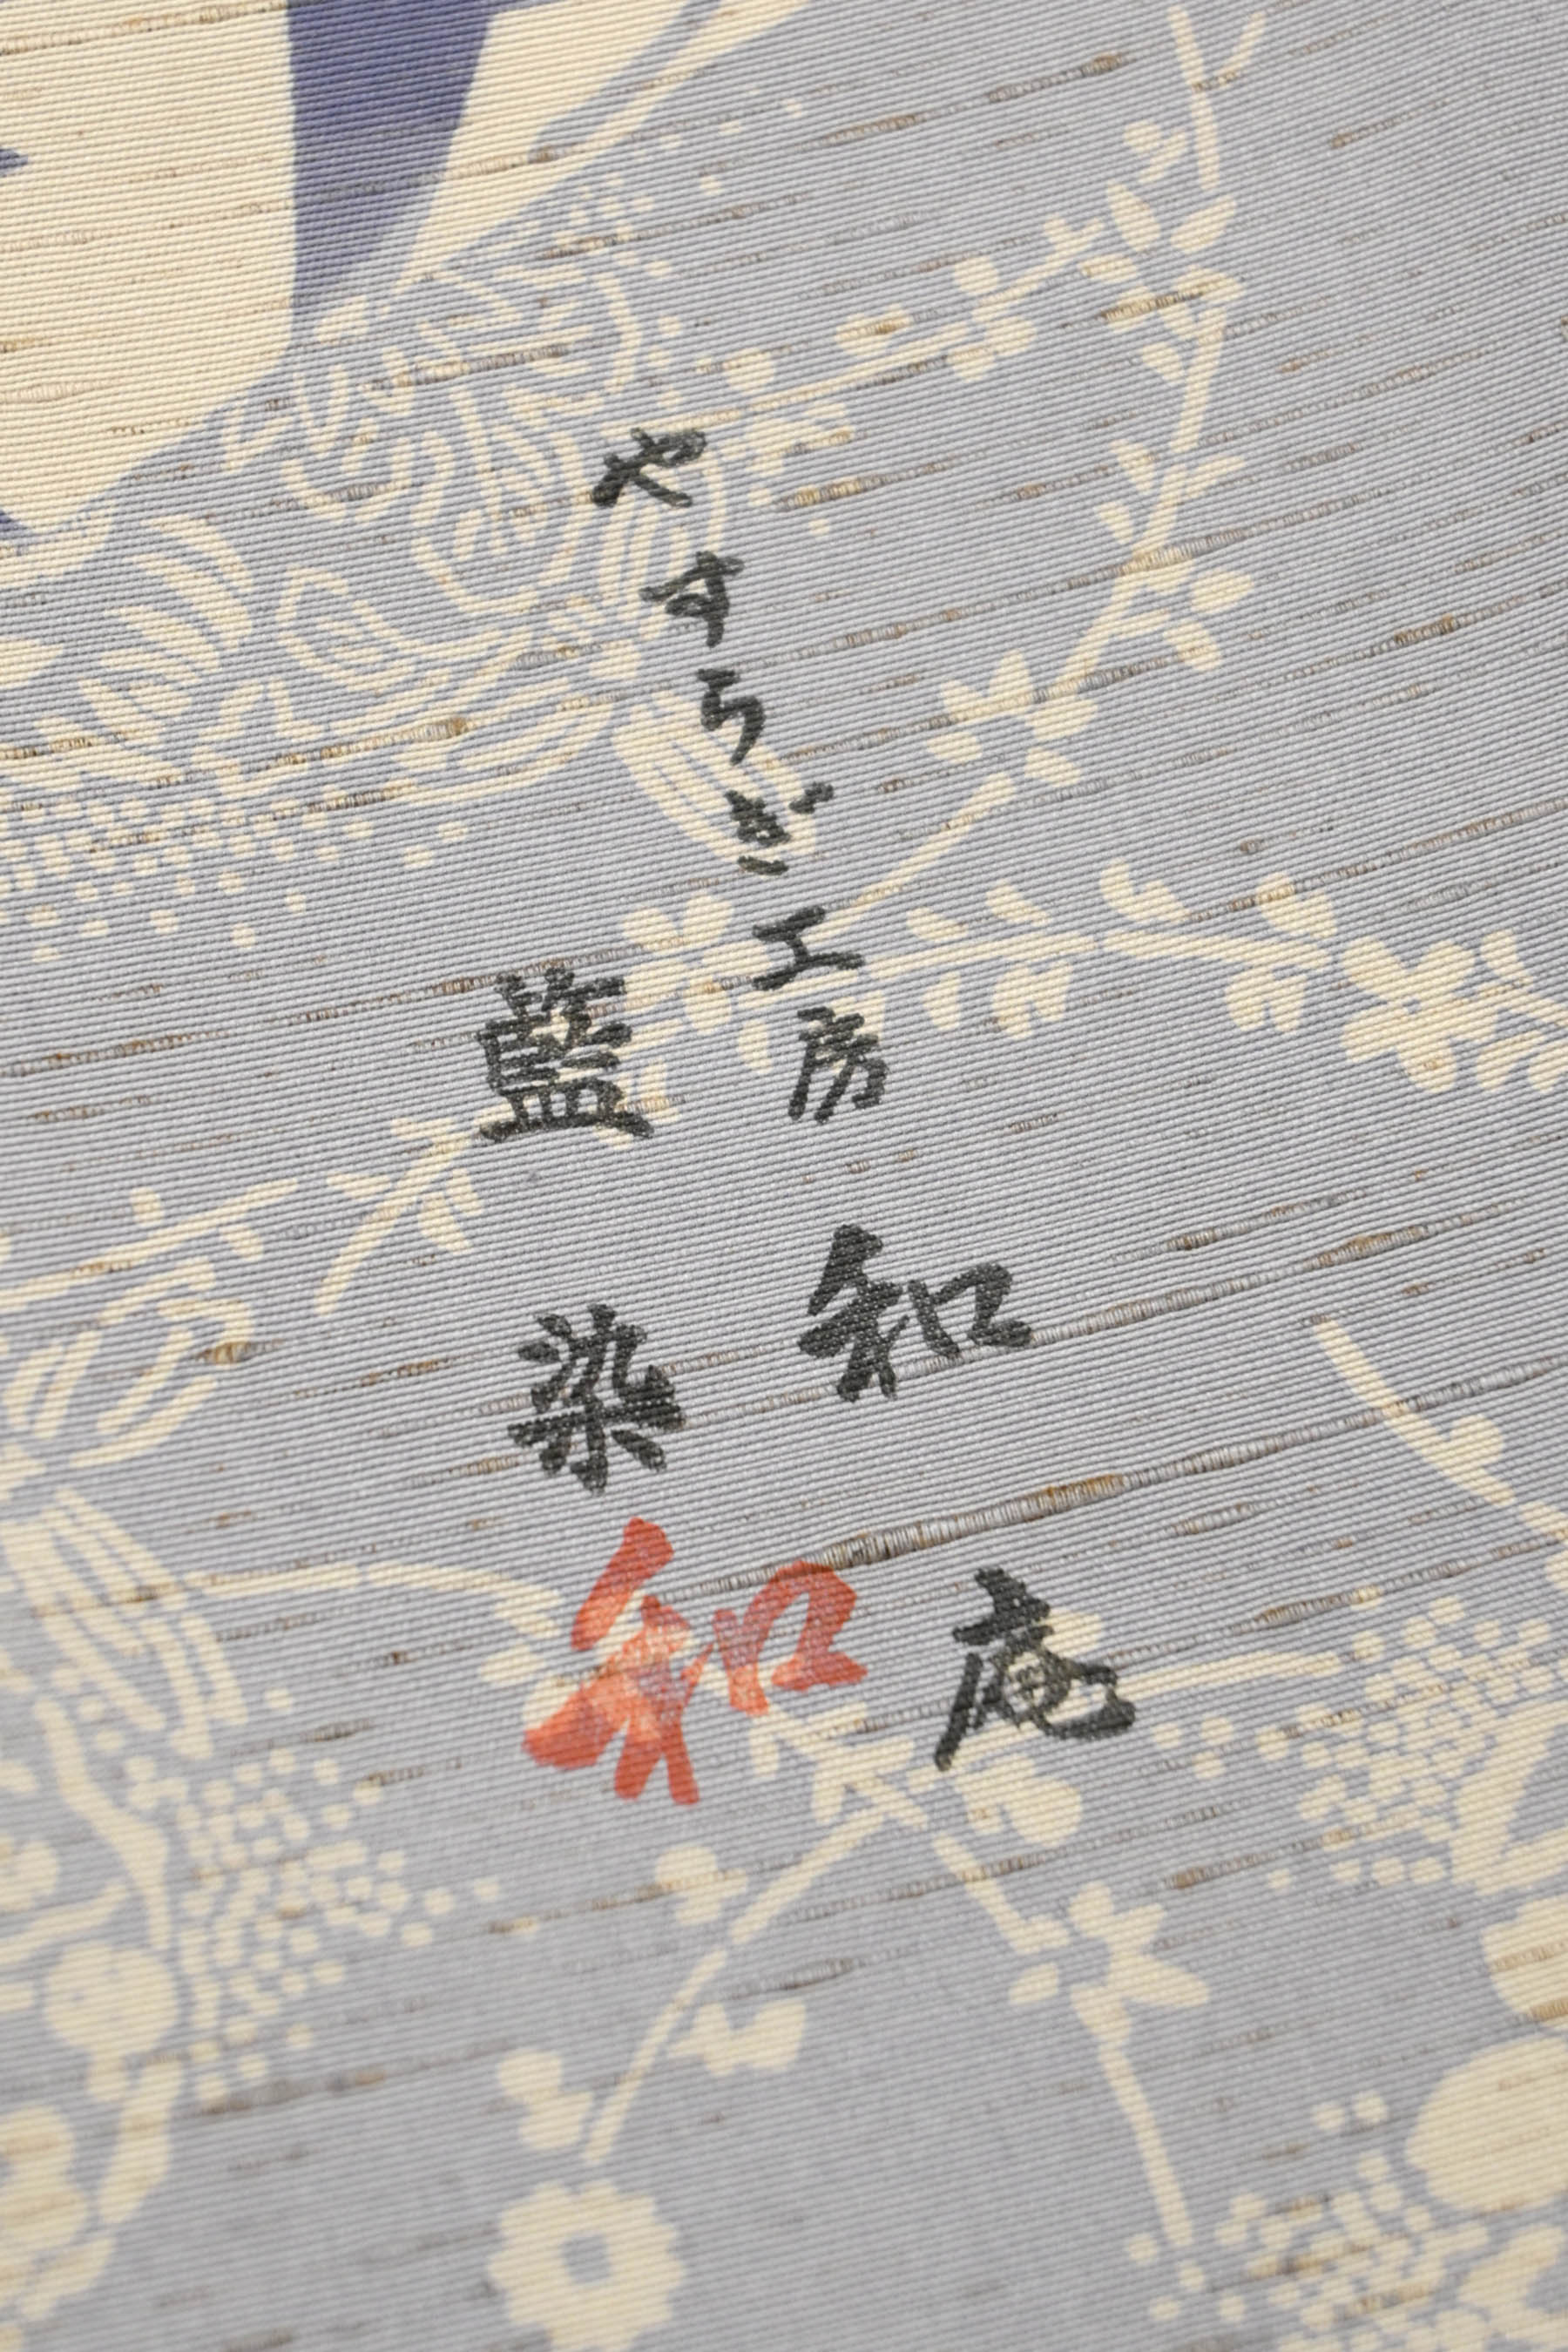 やすらぎ工房
和庵
藍染
和